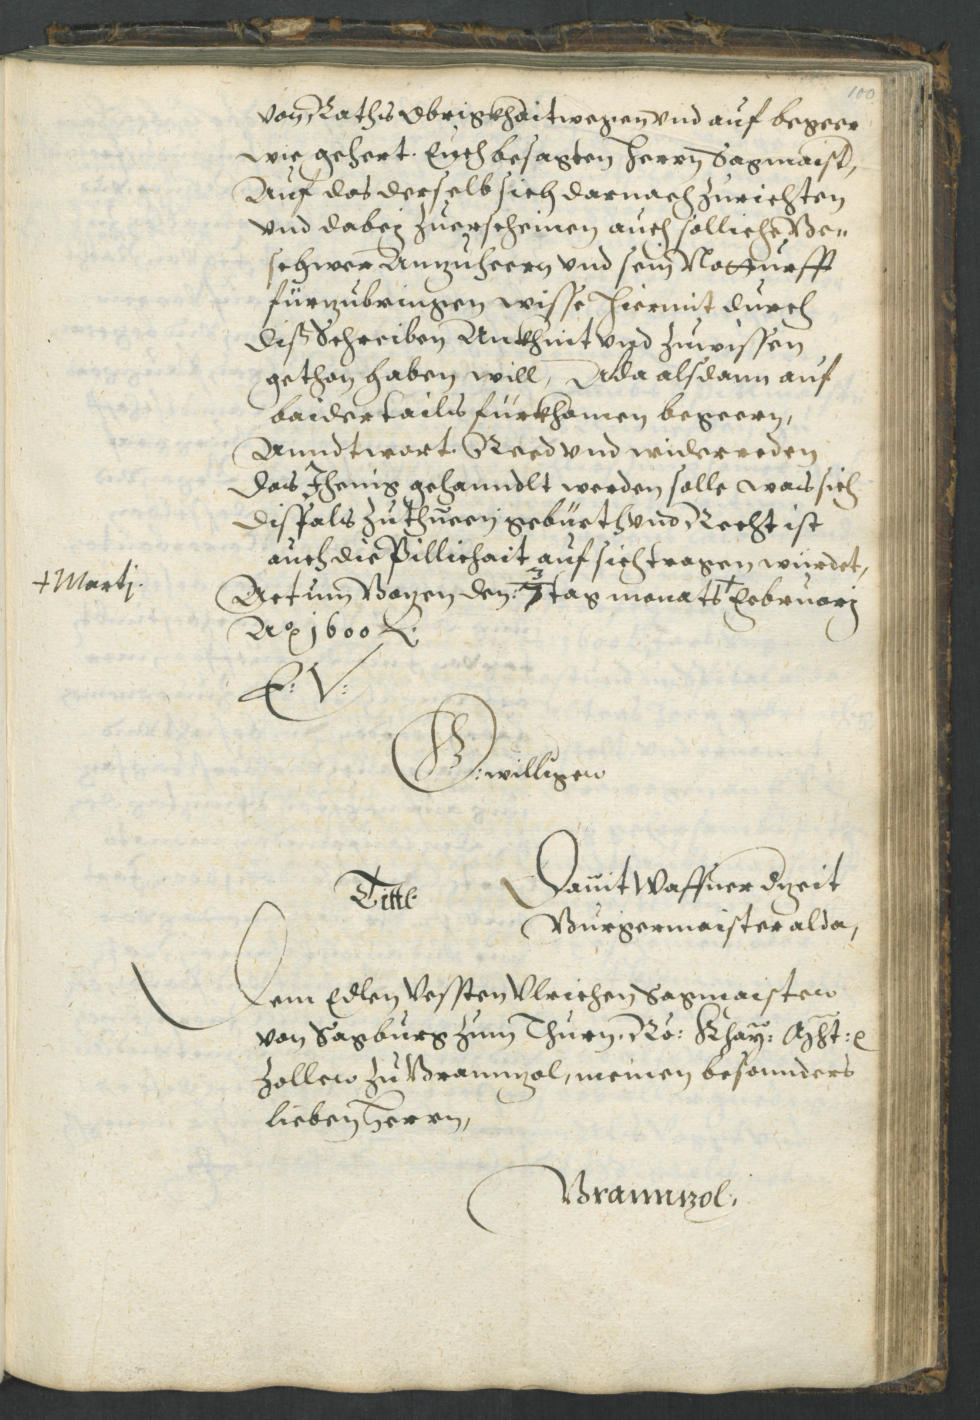 100
von Raths Obrigkhait wegen vnd auf begeer
wie gehert. Euch besagten Herrn Sagmaister,
Auf das derselb sich darnach zurichten
vnd dabej zuerscheinen auch solliche Be„
schwer Anzuheern vnd sein Notturfft
fürzubringen wisse hiermit durch
diß Schreiben Ankhint vnd zuwissen
gethon haben will, Alda alsdann auf
baider tails fürkhomen begeern,
Anndtwort. Reed vnd widerreden
das Jhenig gehanndlt werden solle was sich
dißfals zuthueen gebürth vnd Recht ist
auch die Pillichait auf sich tragen würdet,
+ Martj.
Actum Bozen den: 3 tag monats + Februarj
Ao 1600 &:
E: V:
G: williger
Dauit Waffner dzeit
Burgermaister alda,
Tittl
Dem Edlen Vessten Vlrichen Sagmaister
von Sagburg zum Thurn. Rö: Khay: Mht: &
Zoller zu Brannzol, meinen besonnders
lieben Herrn,
Brannzol.